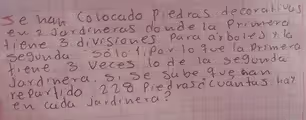 Se han Colocado Piedras decorativas
en 2 Jardineras donde la Primera
tiene 3 divisiones Para arboles y la
segunda Solo 1 Por lo que la Primera
tiene 3 veces lo de la segunda
Jardinera. Si Se sabe que han
repartido 228 Piedras ¿Cuántas hay
en cada Jardinera?